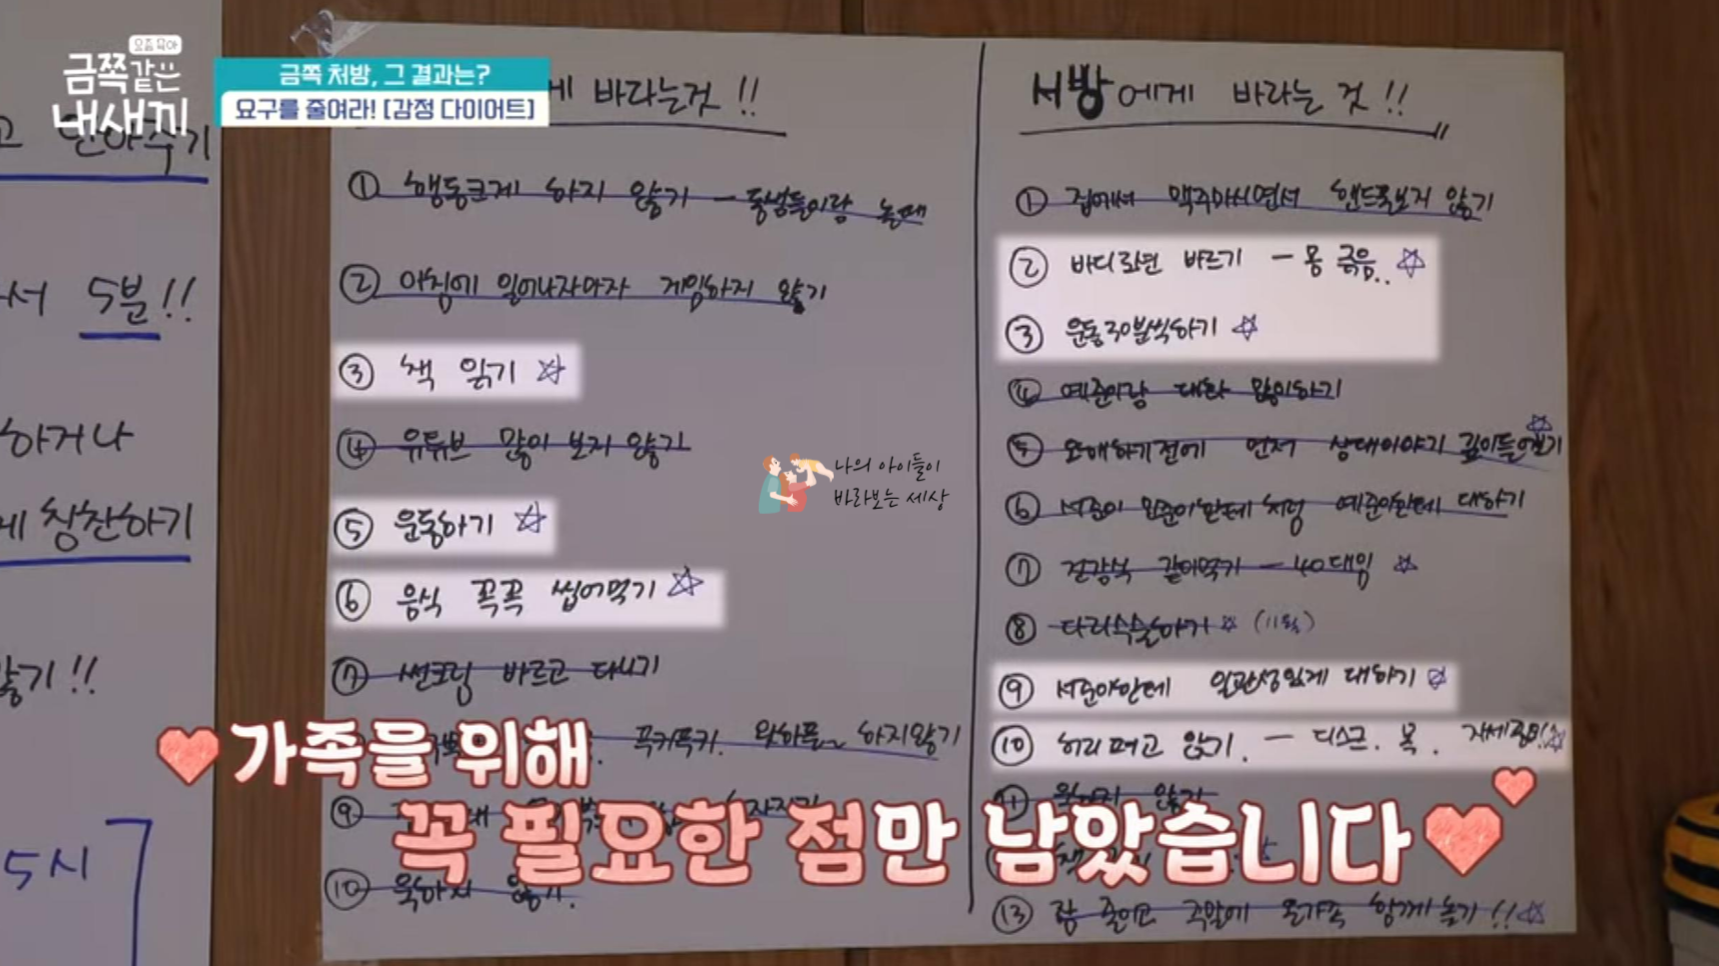 요즘 육아
금쪽같은
내새끼
금쪽 처방, 그 결과는?
요구를 줄여라! [감정 다이어트]
서 5분!!
하거나
칭찬하기
않기!!
5시
에게 바라는것!!
① 행동크게 하지 않기 - 동생들이랑 놀때
② 아침에 일어나자마자 게임하지 않기
③ 책 읽기 ☆
④ 유튜브 많이 보지 않기
⑤ 운동하기 ☆
⑥ 음식 꼭꼭 씹어먹기 ☆
⑦ 썬크림 바르고 다니기
하지않기
⑨
⑩ 욱하지 않기.
서방에게 바라는 것!!
① 집에서 맥주마시면서 핸드폰보지 않기
② 바디로션 바르기 - 몸 긁음.. ☆
③ 운동 30분씩하기 ☆
④ 예준이랑 대화 많이하기
⑤ 오해하기전에 먼저 상대이야기 깊이들어주기 ☆
⑥ 서준이 한테 처럼 예준이한테 대하기
⑦ 건강식 같이먹기 - 40대임 ☆
⑧ 다리수술하기 ☆ (11월)
⑨ 서준이한테 일관성있게 대하기 ☆
⑩ 허리펴고 앉기. - 디스크. 목. 자세
⑪ 욱하지 않기
⑬ 잠 줄이고 주말에 온가족 함께놀기!! ☆
나의 아이들이
바라보는 세상
가족을 위해
꼭 필요한 점만 남았습니다